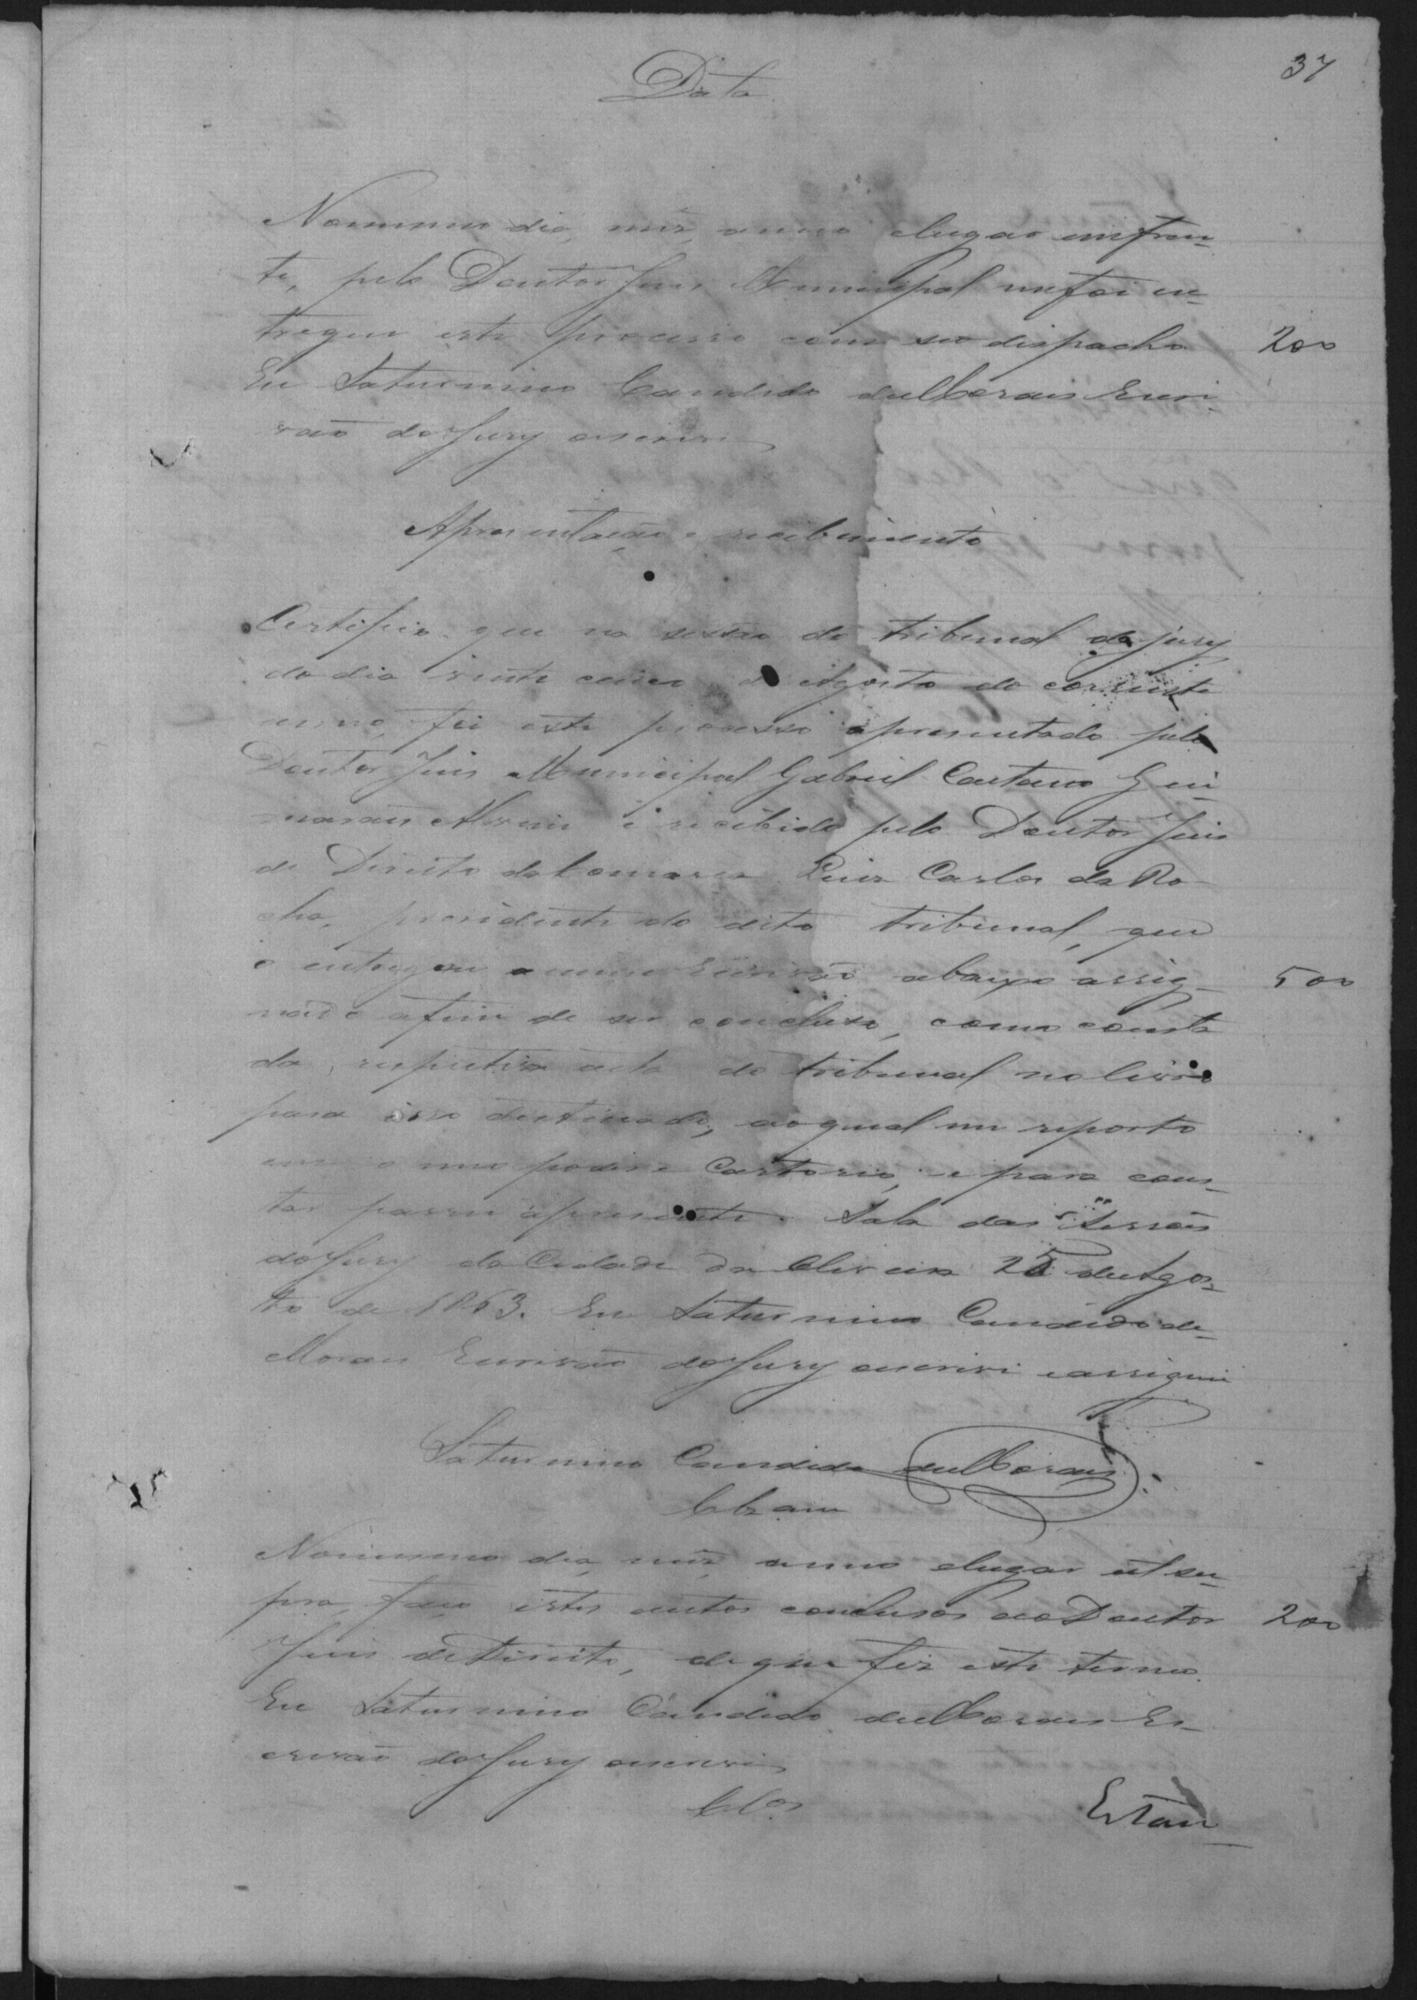 37
Data
No mesmo dia, mez, anno e lugar em fren-
te, pelo Doutor Juis Municipal me foi en-
tregue este processo com seo dispacho 200
Eu Saturnino Candido de Morais Escri-
vão do Jury escrevi
Apresentação e recibimento
Certifico que na sessão do tribunal do jury
do dia vinte cinco de Agosto do corrente
anno, foi este processo apresentado pelo
Doutor Juis Municipal Gabriel Caetano Gui-
marães e recibido pelo Doutor Juis
de Direito da Comarca Luis Carlos da Ro-
cha, presidente do dito tribunal, que
o entregou a mim Escrivão abaixo assig- 500
nado afim de ser concluso, como consta
da respectiva acta do tribunal no livro
para isso destinado, ao qual me reporto
em o meo poder e Cartorio, e para cons-
tar passei apresente. Sala das Sessões
do Jury da Cidade da Oliveira 25 de Agos-
to de 1863. Eu Saturnino Candido de
Morais Escrivão do Jury escrevi e assignei
Saturnino Candido de Morais
Clzam
No mesmo dia, mez, anno e lugar ut su-
pra, faço estes autos conclusos ao Doutor 200
Juis de Direito, de que fiz este termo.
Eu Saturnino Candido de Morais Es-
crivão do Jury escrevi
Clos
Estan-